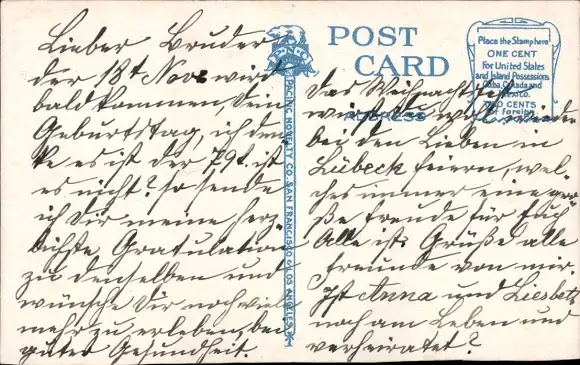 Lieber Bruder
der 18t Nov. wird
bald kommen, Dein
Geburtstag, ich den-
ke es ist der 79t. ist
es nicht? so sende
ich Dir meine herz-
lichste Gratulation
zu denselben und
wünsche Dir noch viele
mehr zu erleben, bei
guter Gesundheit.
PACIFIC NOVELTY CO. SAN FRANCISCO & LOS ANGELES.
POST
CARD
ADDRESS
Place the Stamp here
ONE CENT
for United States
and Island Possessions
Cuba, Canada and
Mexico.
TWO CENTS
for Foreign
Das Weihnachtsfest
wirst Du wohl wieder
bei den Lieben in
Lübeck feiern, wel-
ches immer eine gro-
ße Freude für Euch
Alle ist. Grüße alle
Freunde von mir.
Ist Anna und Liesbet
noch am Leben und
verheiratet?